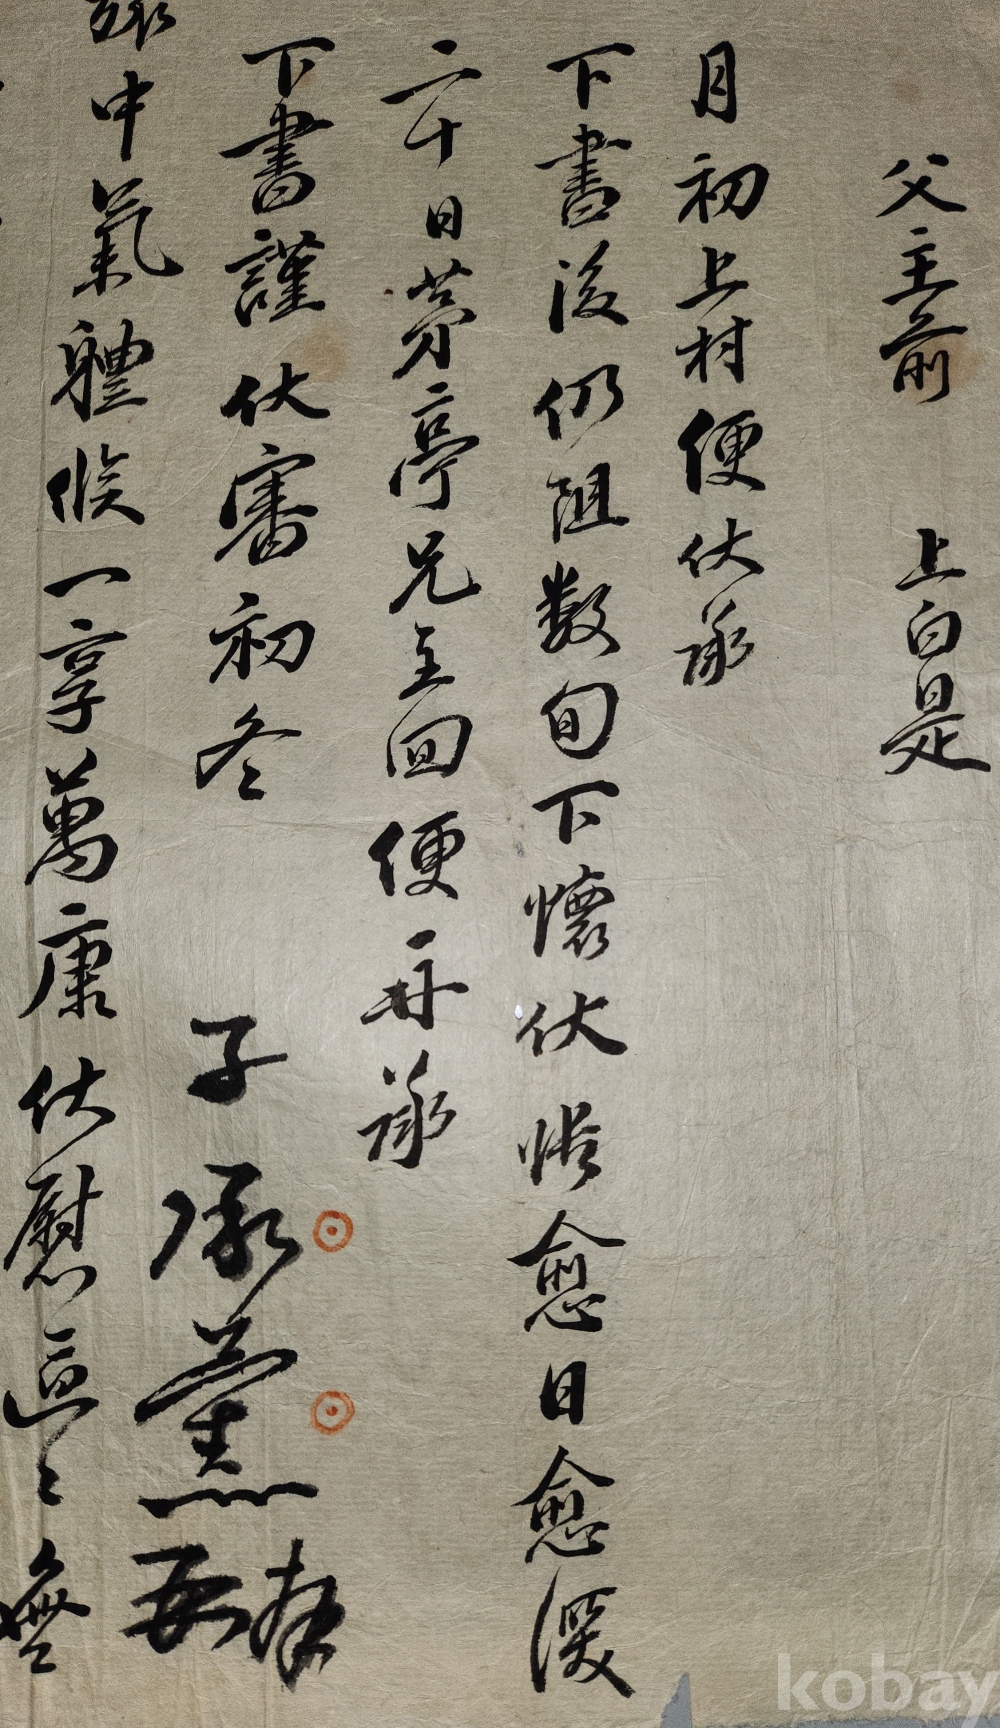 父主前 上白是
月初上村便伏承
下書後仍阻數旬下懷伏悵愈日愈深
二十日芳亭兄主回便再承
下書謹伏審初冬
子承薰
中氣體候一享萬康伏慰區〻無
kobay